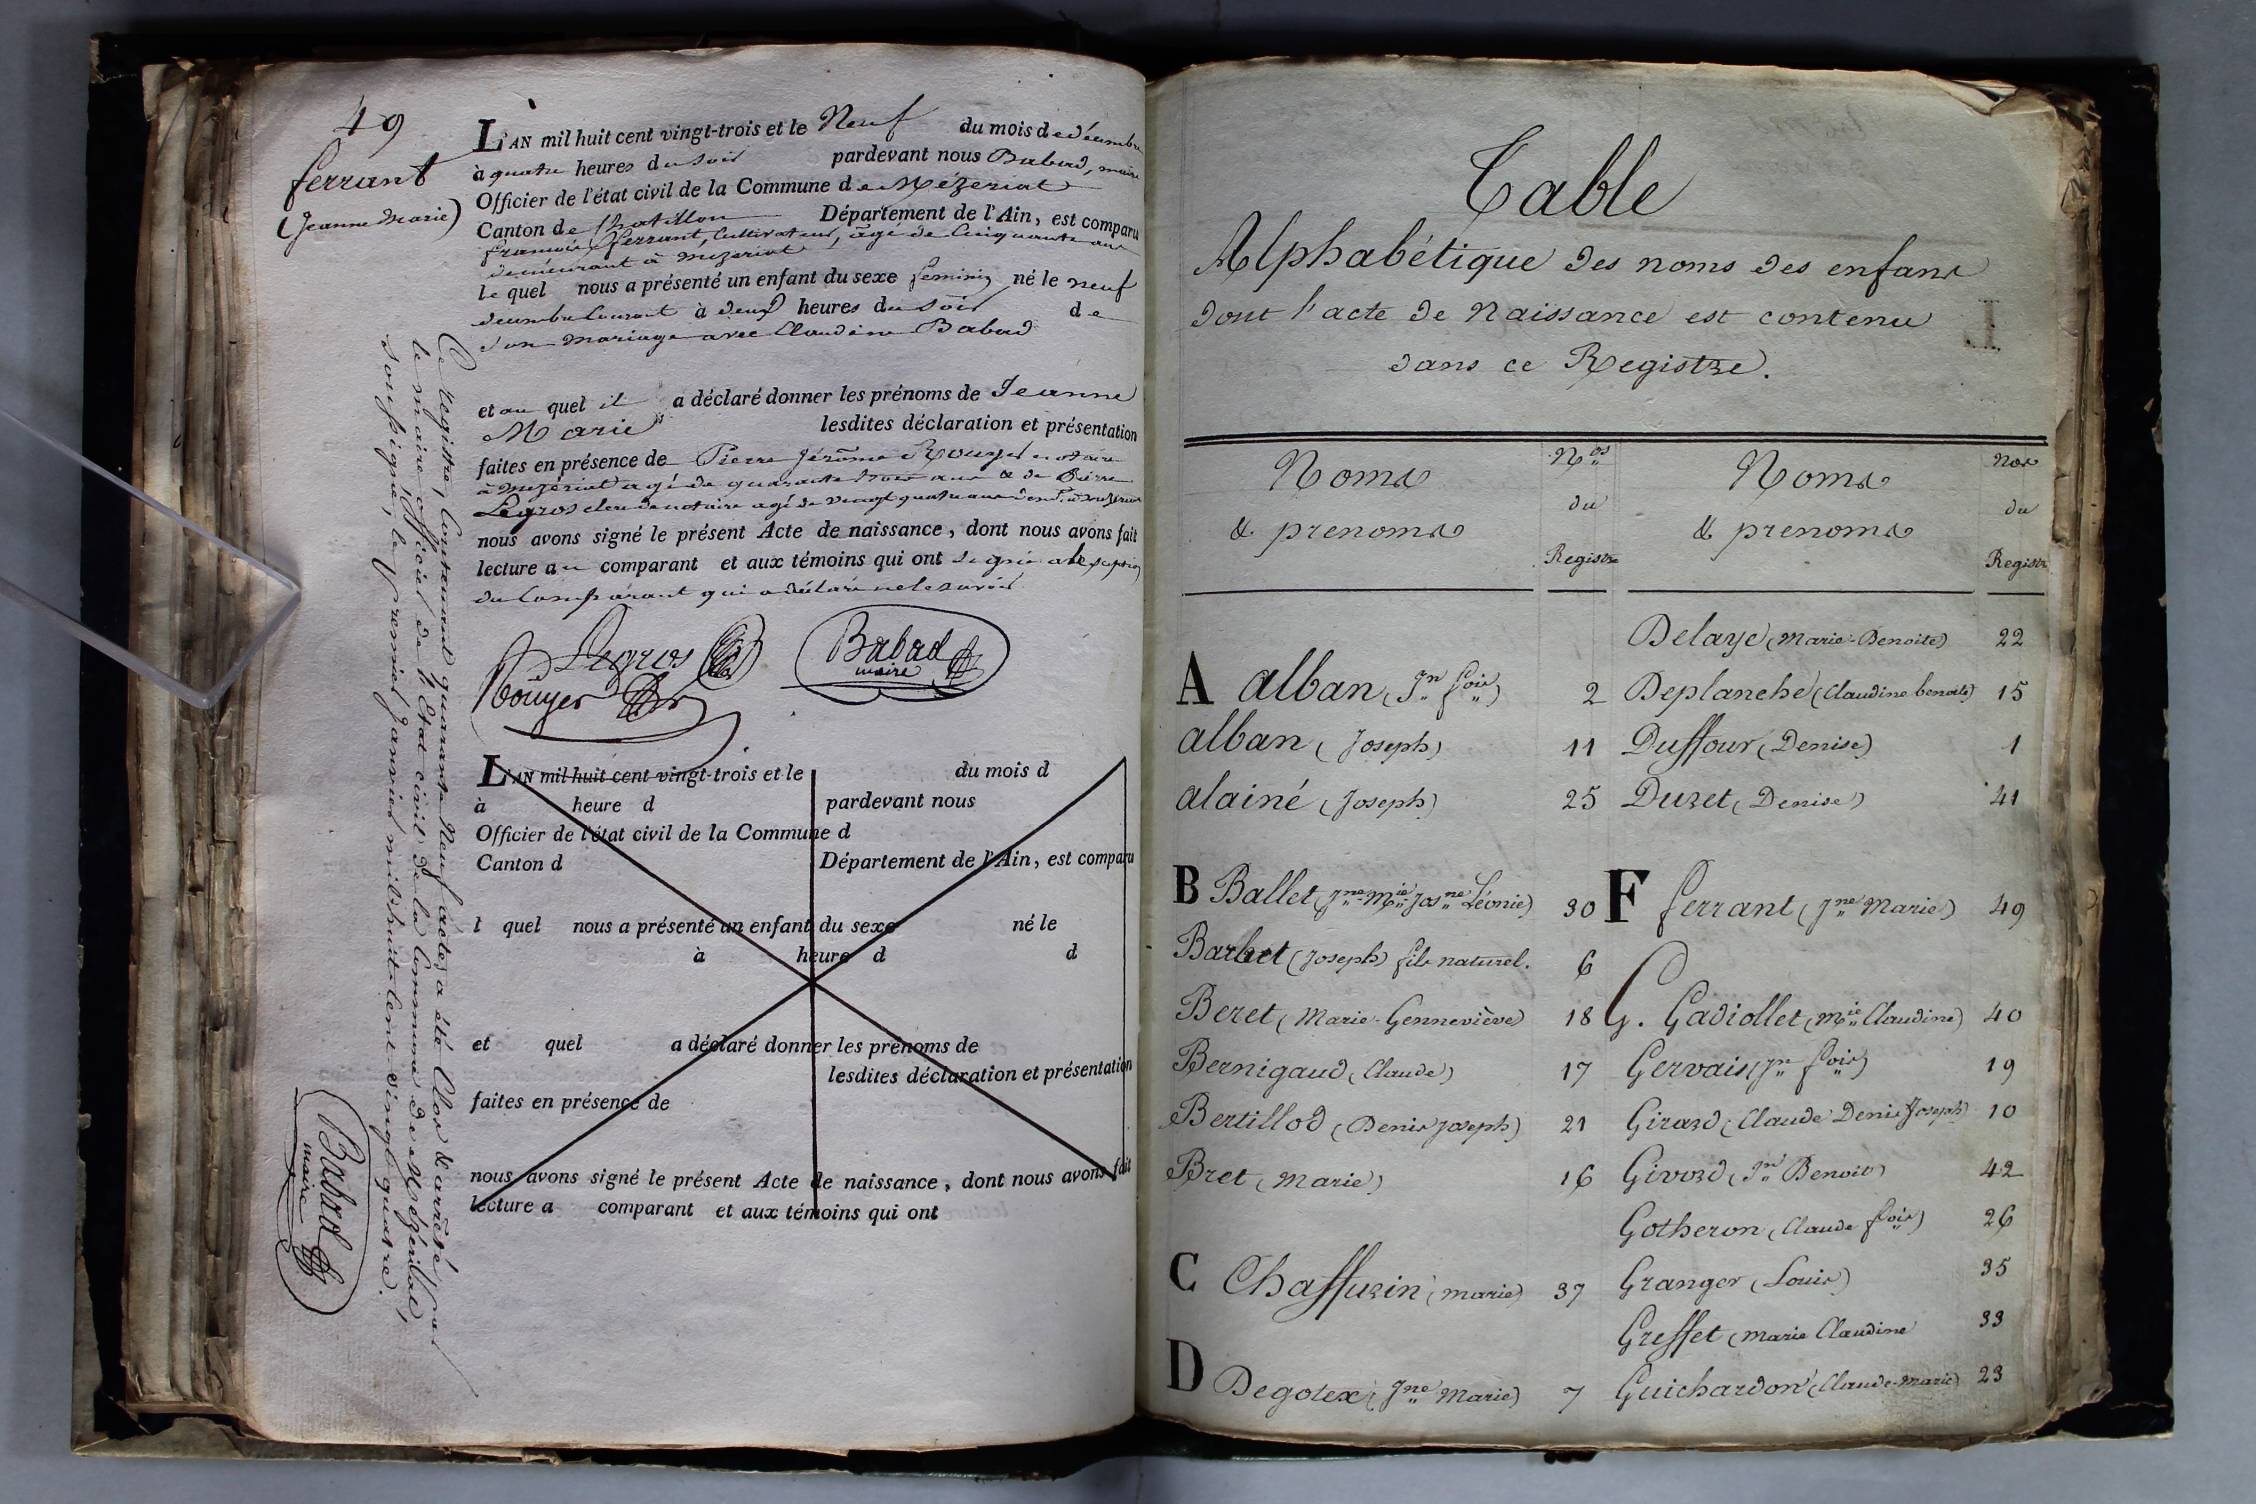 49
ferrant
(Jeanne Marie)
L'AN mil huit cent vingt-trois et le Neuf du mois de décembre
à quatre heures du soir pardevant nous Babad, maire
Officier de l'état civil de la Commune de Mézeriat
Canton de Chatillon Département de l'Ain, est comparu
françois ferrant, Cultivateur, âgé de Cinquante ans
demeurant à mezeriat
le quel nous a présenté un enfant du sexe feminin né le neuf
decembre Courant à deux heures du soir de
son mariage avec Claudine Babad
et au quel il a déclaré donner les prénoms de Jeanne
Marie lesdites déclaration et présentation
faites en présence de Pierre Jérôme Rouyer notaire
à mezériat agé de quarante trois ans & de Pierre
Legros clerc de notaire agé de vingt quatre ans dem.t à mezeriat
nous avons signé le présent Acte de naissance, dont nous avons fait
lecture au comparant et aux témoins qui ont signé a l'exception
du Comparant qui a déclaré ne le savoir
Legros Babad
maire
Rouyer
L'AN mil huit cent vingt-trois et le du mois d
à heure d pardevant nous
Officier de l'état civil de la Commune d
Canton d Département de l'Ain, est comparu
l quel nous a présenté un enfant du sexe né le
à heure d d
et quel a déclaré donner les prénoms de
lesdites déclaration et présentation
faites en présence de
nous avons signé le présent Acte de naissance, dont nous avons fait
lecture a comparant et aux témoins qui ont
Ce Registre, Contenant quarante Neuf actes, a été Clos & arrêté, par
le maire, officier de l'Etat civil de la Commune de Mézériat,
soussigné, le premier Janvier mil huit cent vingt quatre.
Babad
maire
Table
Alphabétique des noms des enfans
dont l'acte de Naissance est contenu
dans ce Registre.
Noms
& prenoms
N.os
du
Registre
Noms
& prenoms
Nos
du
Registre
A alban (Jn fois) 2
alban (Joseph) 11
alainé (Joseph) 25
B Ballet (Jne Mie Josne Léonie) 30
Barbet (Joseph) fils naturel. 6
Beret (Marie-Genneviève) 18
Bernigaud (Claude) 17
Bertillod (Denis Joseph) 21
Bret (Marie) 16
C Chaffurin (marie) 37
D Degolex (Jne Marie) 7
Delaye (Marie-Benoite) 22
Deplanche (Claudine benoite) 15
Duffour (Denise) 1
Duret (Denise) 41
F ferrant (Jne Marie) 49
G. Gadiollet (Mie Claudine) 40
Gervais (Jn fois) 19
Girard (Claude Denis Joseph) 10
Givord (Jn Benoit) 42
Gotheron (Claude fois) 26
Granger (Louis) 35
Greffet (marie Claudine 33
Guichardon (Claude-Marie) 23